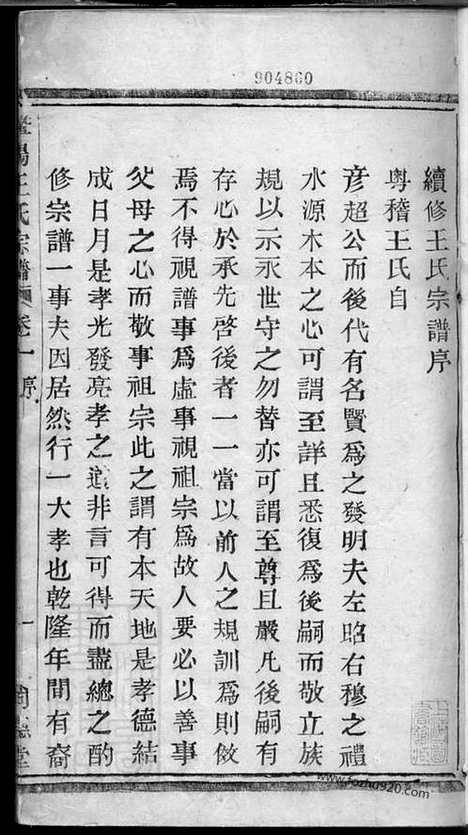 904860
續修王氏宗譜序
粤稽王氏自
彦超公而後代有名賢爲之發明夫左昭右穆之禮
水源木本之心可謂至詳且悉復爲後嗣而敬立族
規以示永世守之勿替亦可謂至尊且嚴凡後嗣有
存心於承先啓後者一一當以前人之規訓爲則倣
焉不得視譜事爲虛事視祖宗爲故人要必以善事
父母之心而敬事祖宗此之謂有本天地是孝德結
成日月是孝光發亮孝之道非言可得而盡總之酌
修宗譜一事夫因居然行一大孝也乾隆年間有裔
陽王氏宗譜 卷一 序 一 堂
www.fozhu920.com